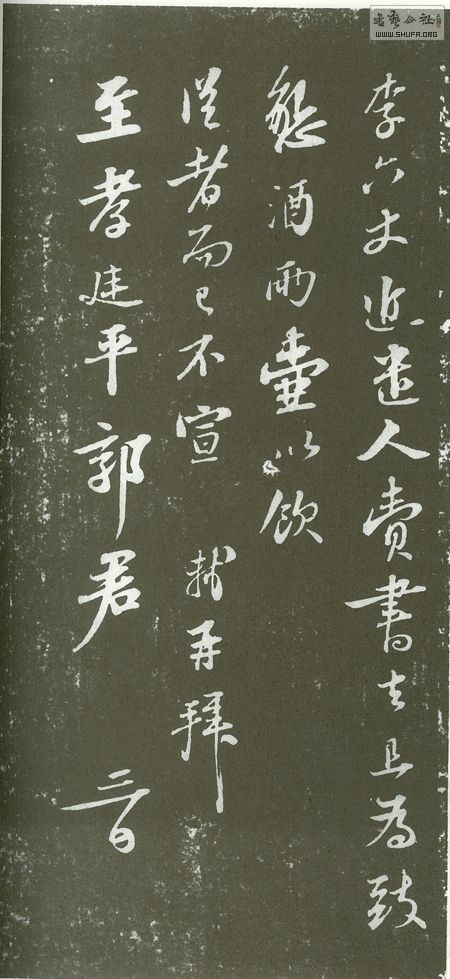 書藝公社
WWW.SHUFA.ORG
李六丈近遣人賫書去且為致
酒兩壺以飲
從者而已不宣 軾再拜
至孝廷平郭君